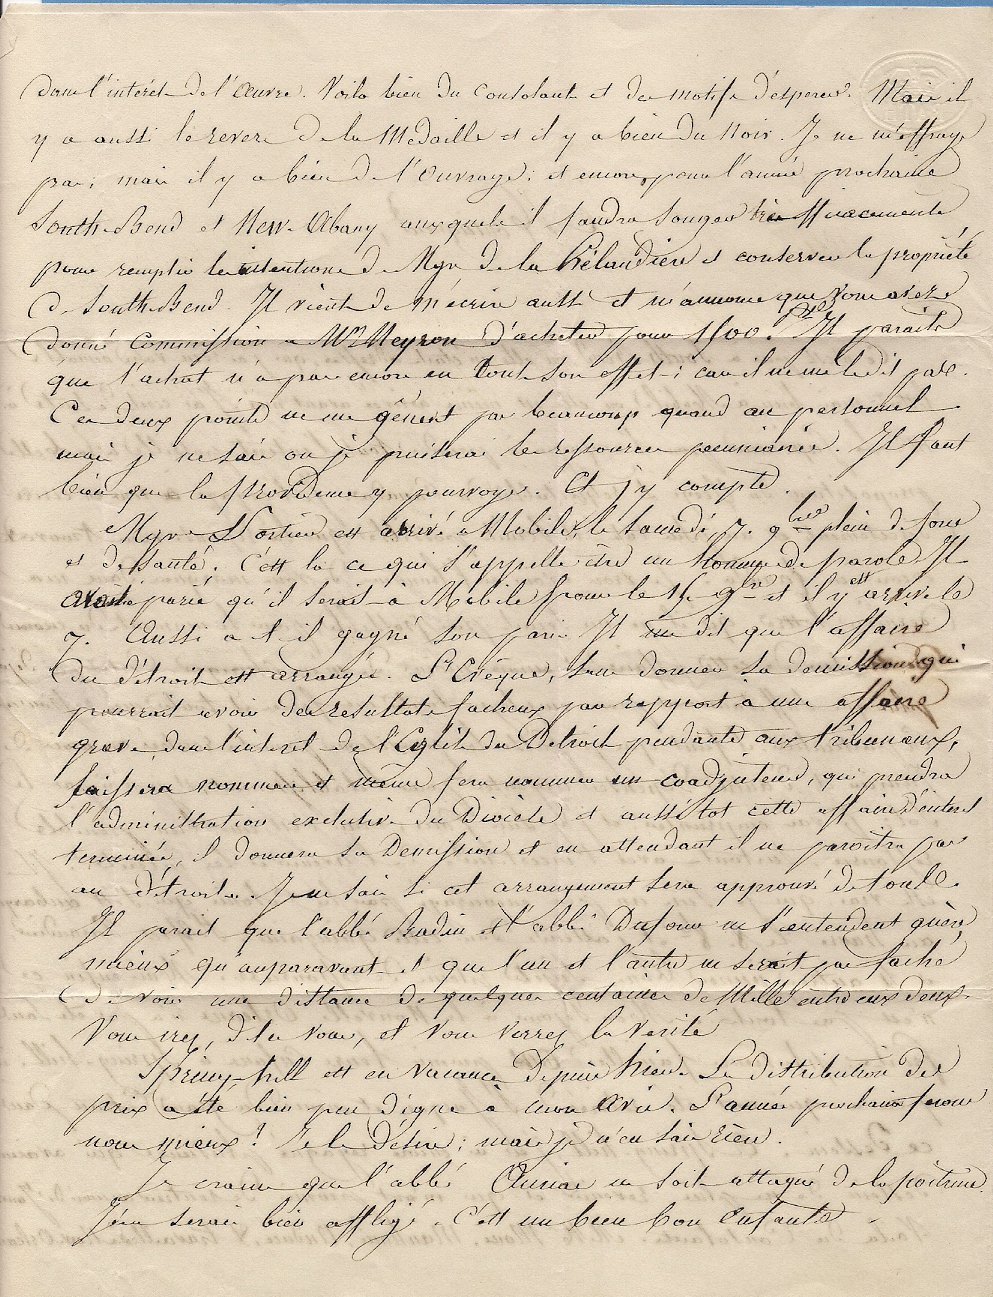 dans l'intérêt de l'Œuvre. Voila bien du consolant et des motifs d'espérer. Mais il
y a aussi le revers de la Médaille et il y a bien du noir. Je ne m'effraye
pas; mais il y a bien de l'ouvrage; et encore, pour l'année prochaine
South-Bend et New-Albany auxquels il faudra songer très efficacement
pour remplir les intentions de Mgr de la hélandière et conserver la propriété
de South Bend. Il vient de m'écrire aussi et m'annonce que vous avez
donné commission à Mr Neyron d'acheter pour 1500 ptes. Il parait
que l'achat n'a pas encore eu tout son effet; car il ne me le dit pas.
Ces deux points ne me gênent pas beaucoup quand au personnel
mais je ne sais où je puiserai les ressources pécuniaires. Il faut
bien que la providence y pourvoye. Et j'y compte.
Mgr Portier est arrivé à Mobile, le samedi, 7. 9bre plein de force
et de santé. C'est la ce qui s'appelle être un homme de parole. Il
avait parié qu'il serait à Mobile pour le 15 9bre et il y est arrivé le
7. Aussi a t il gagné son pari. Il me dit que l'affaire
du détroit est arrangée. L'Evêque, sans donner sa demission qui
pourrait avoir des resultats facheux par rapport a une affaire
grave dans l'interet de l'Eglise du Detroit pendante aux tribunaux,
laissera nommer et même fera nommer un coadjuteur, qui prendra
l'administration exclusive du Diocèse et aussitot cette affaire d'interet
terminée, il donnera sa Demission et en attendant il ne paroitra pas
au détroit. Je ne sais si cet arrangement sera approuvé de tous.
Il parait que l'abbé Badin et l'abbé Dufour ne s'entendent guère
mieux qu'auparavant et que l'un et l'autre ne serait pas faché
de voir une distance de quelques centaines de Mille entre eux deux.
Vous irez, dites vous, et vous verrez la verité
Spring-hill est en vacance depuis hier. La distribution des
prix a été bien peu digne à mon avis. L'année prochaine ferons
nous mieux? Je le désire; mais je n'en sais rien.
Je crains que l'abbé ne soit attaqué de la poitrine.
J'en serais bien affligé. C'est un bien bon enfant.